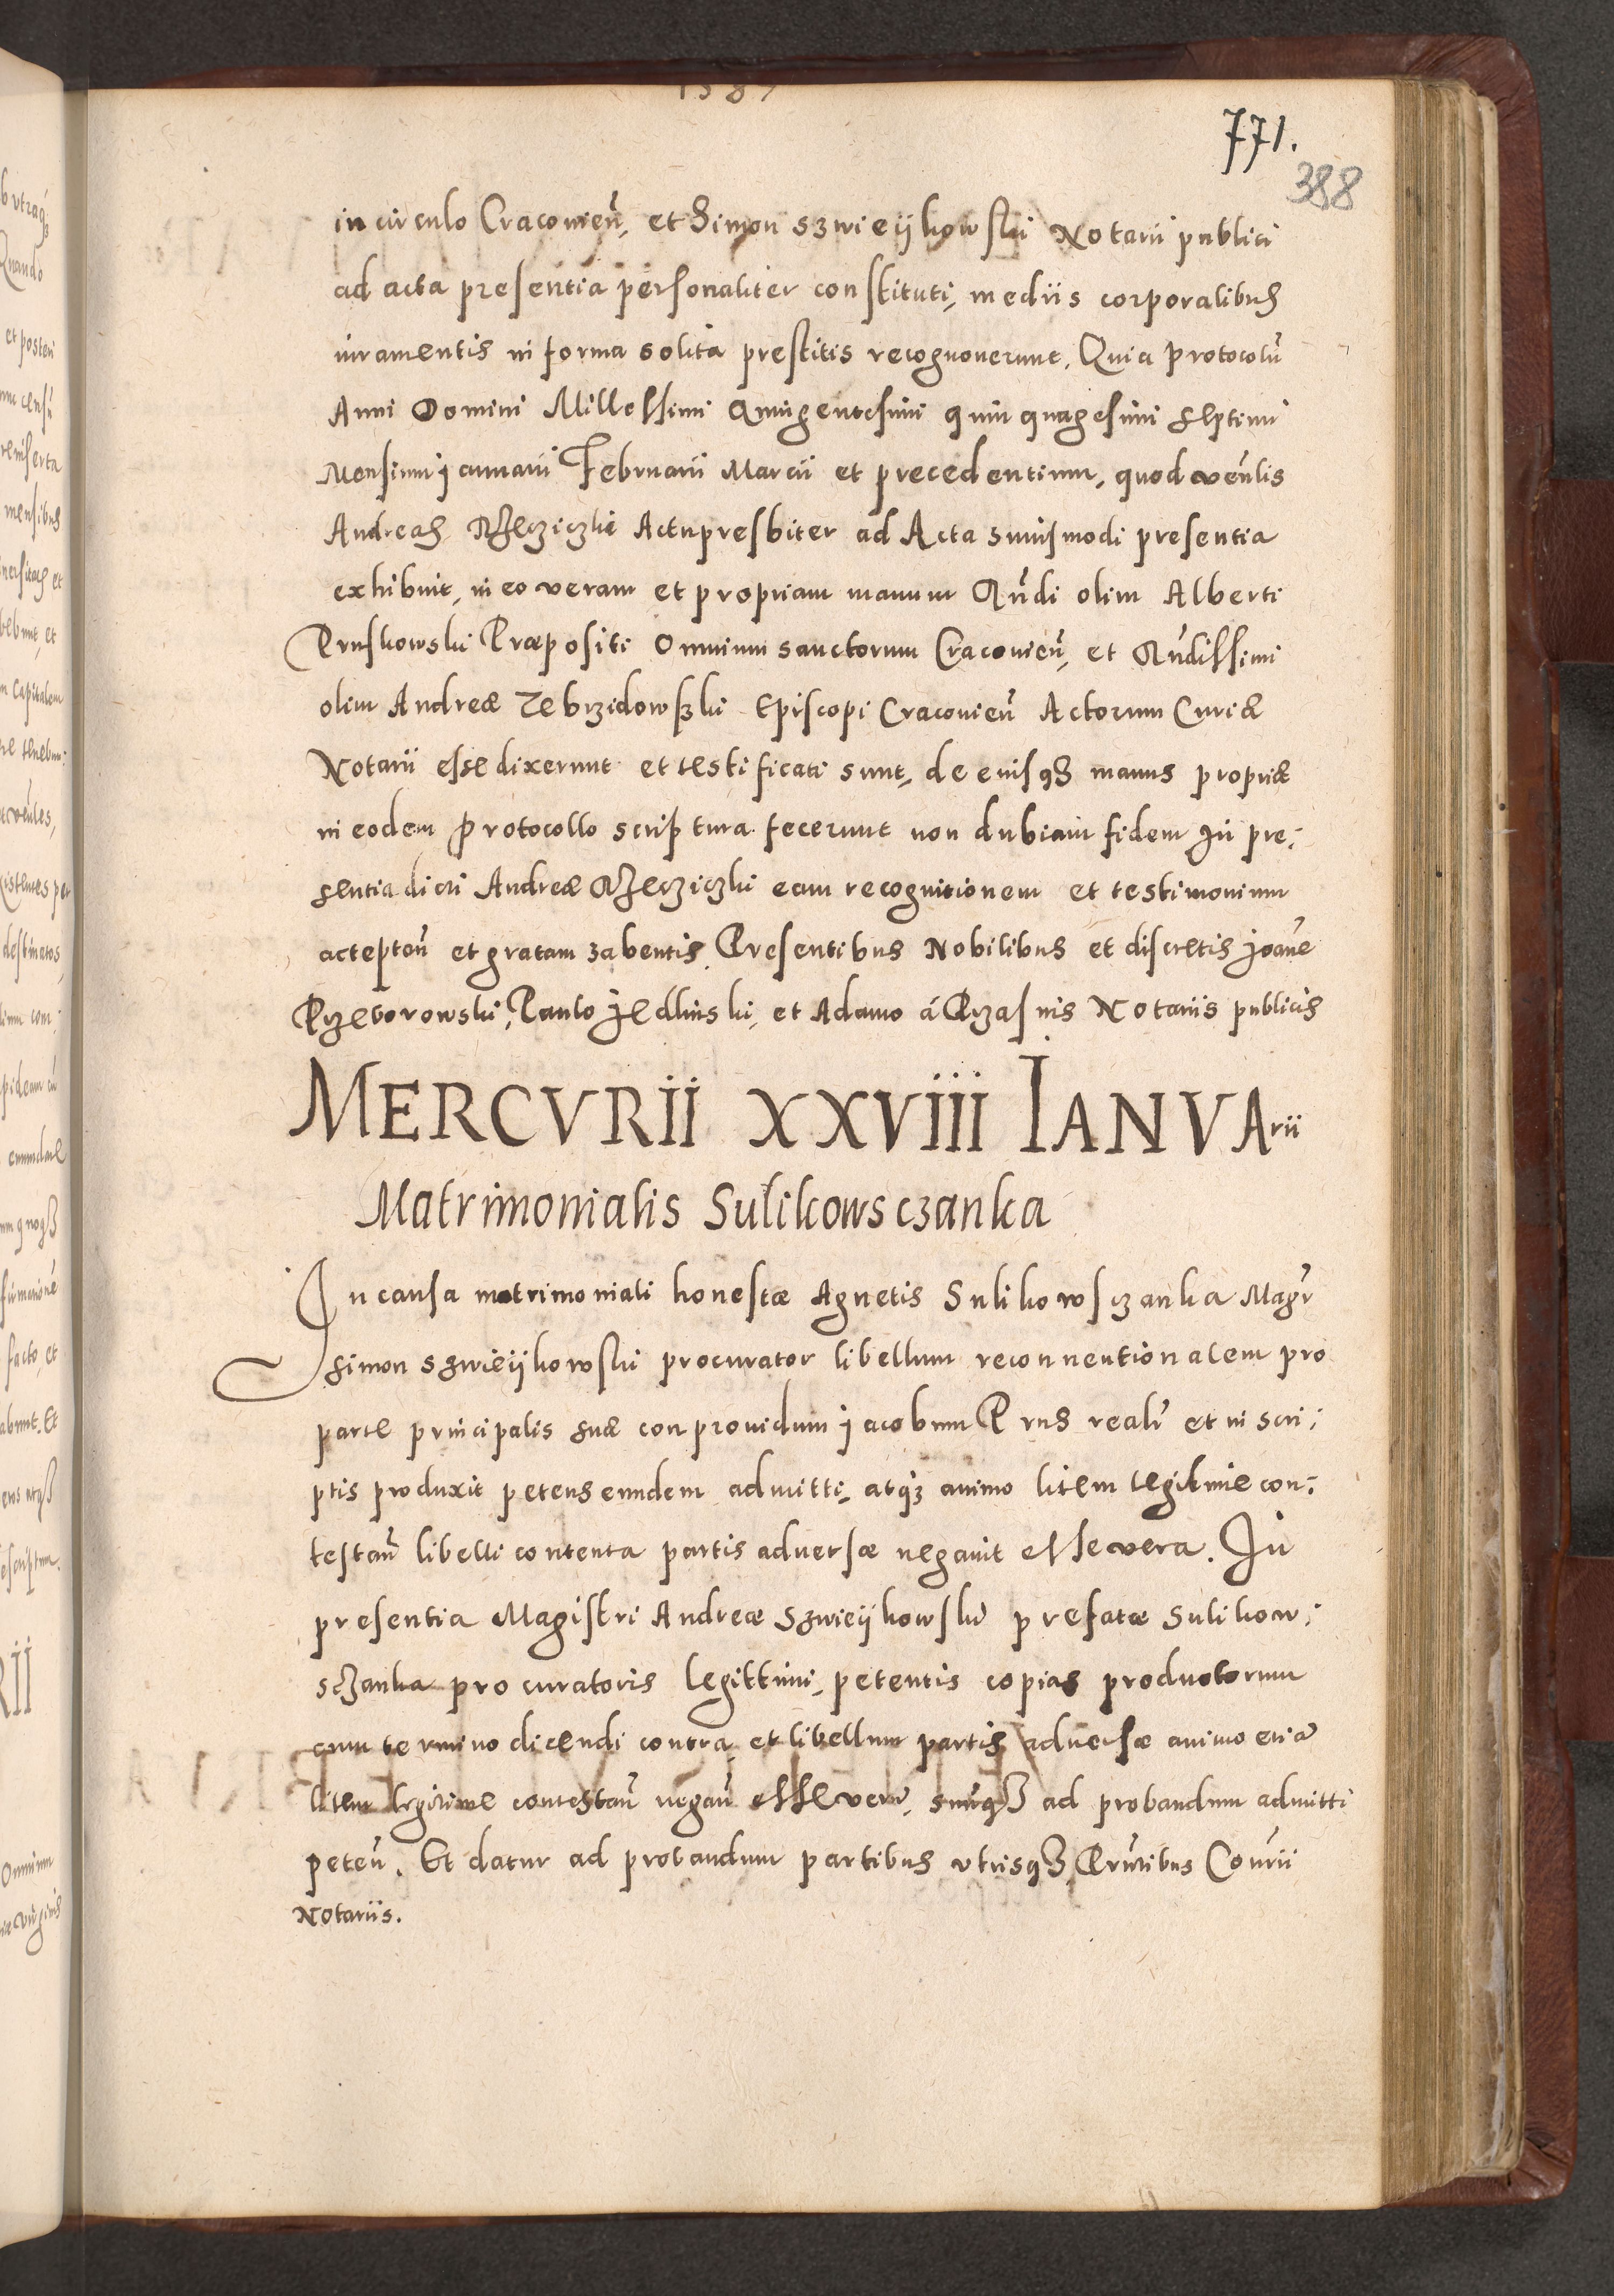 1587
771.
388
in circulo Cracovieñ, et Simon Szwieÿkowski Notarii publici
ad acta presentia personaliter constituti, mediis corporalibus
iuramentis in forma solita prestitis recognoverunt. Quia protocolũ
Anni Domini Millessimi Quingentesimi quinquagesimi septimi
Mensium januarii Februarii Marcii et precedentium, quod veñlis
Andreas Rzecziczki Actupresbiter ad Acta s iuismodi presentia
exhibuit, in eo veram et propriam manum Rñdi olim Alberti
Pruskowski Præpositi Omnium sanctorum Cracovieñ, et Rñdissimi
olim Andreæ Zebrzidowski Episcopi Cracovieñ Actorum Curiæ
Notarii esse dixerunt et testificati sunt, de euisqз manus propriæ
in eodem Protocollo scriptura fecerunt non dubiam fidem In pre:
sentia dicti Andreæ Rzecziczki eam recognitionem et testimonium
acceptañ et gratam habentis. Presentibus Nobilibus et discretis Joañe
Przeborowski, Paulo Jedlinski, et Adamo á Przasnis Notariis publicis
MERCVRII XXVIII IANVArii
Matrimonialis Sulikowsczanka
In causa matrimoniali honestæ Agnetis Sulikowsczanka Magr̃
Simon Szwieÿkowski procurator libellum reconuentionalem pro
parte principalis suæ con prouidum jacobum Prus realr̃ et in scri:
ptis produxit petens eundem admitti, atqз animo litem legitime con:
testañ libelli contenta partis aduersæ negauit esse vera. In
presentia Magistri Andreæ Szwieÿkowski prefatæ Sulikow:
sczanka procuratoris legittimi, petentis copias productorum
cum termino dicendi contra, et libellum partis aduersæ animo etiã
litem legitime contestañ negañ esse verũ, suũqз ad probandum admitti
peteñ. Et datur ad probandum partibus vtrisqз, Prñtibus Coñrii
Notariis.